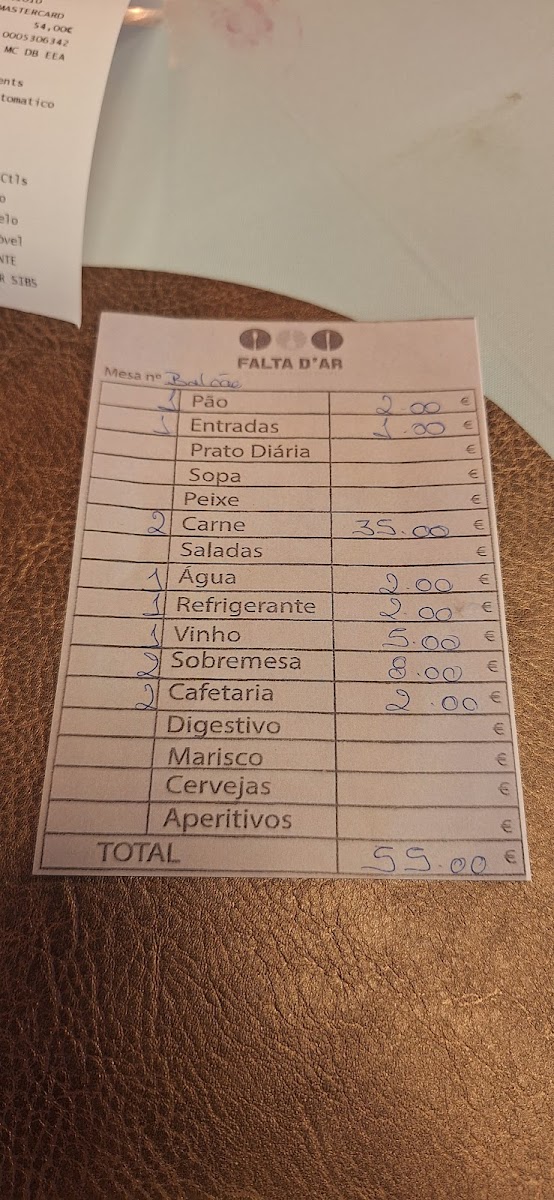 MASTERCARD
54,00€
0005306342
MC DB EEA
ents
tomatico
Ctls
o
elo
óvel
NTE
R SIBS
FALTA D'AR
Mesa nº Balcão
1 Pão 2.00 €
1 Entradas 1.00 €
Prato Diária €
Sopa €
Peixe €
2 Carne 35.00 €
Saladas €
1 Água 2.00 €
1 Refrigerante 2.00 €
1 Vinho 5.00 €
2 Sobremesa 8.00 €
2 Cafetaria 2.00 €
Digestivo €
Marisco €
Cervejas €
Aperitivos €
TOTAL 55.00 €